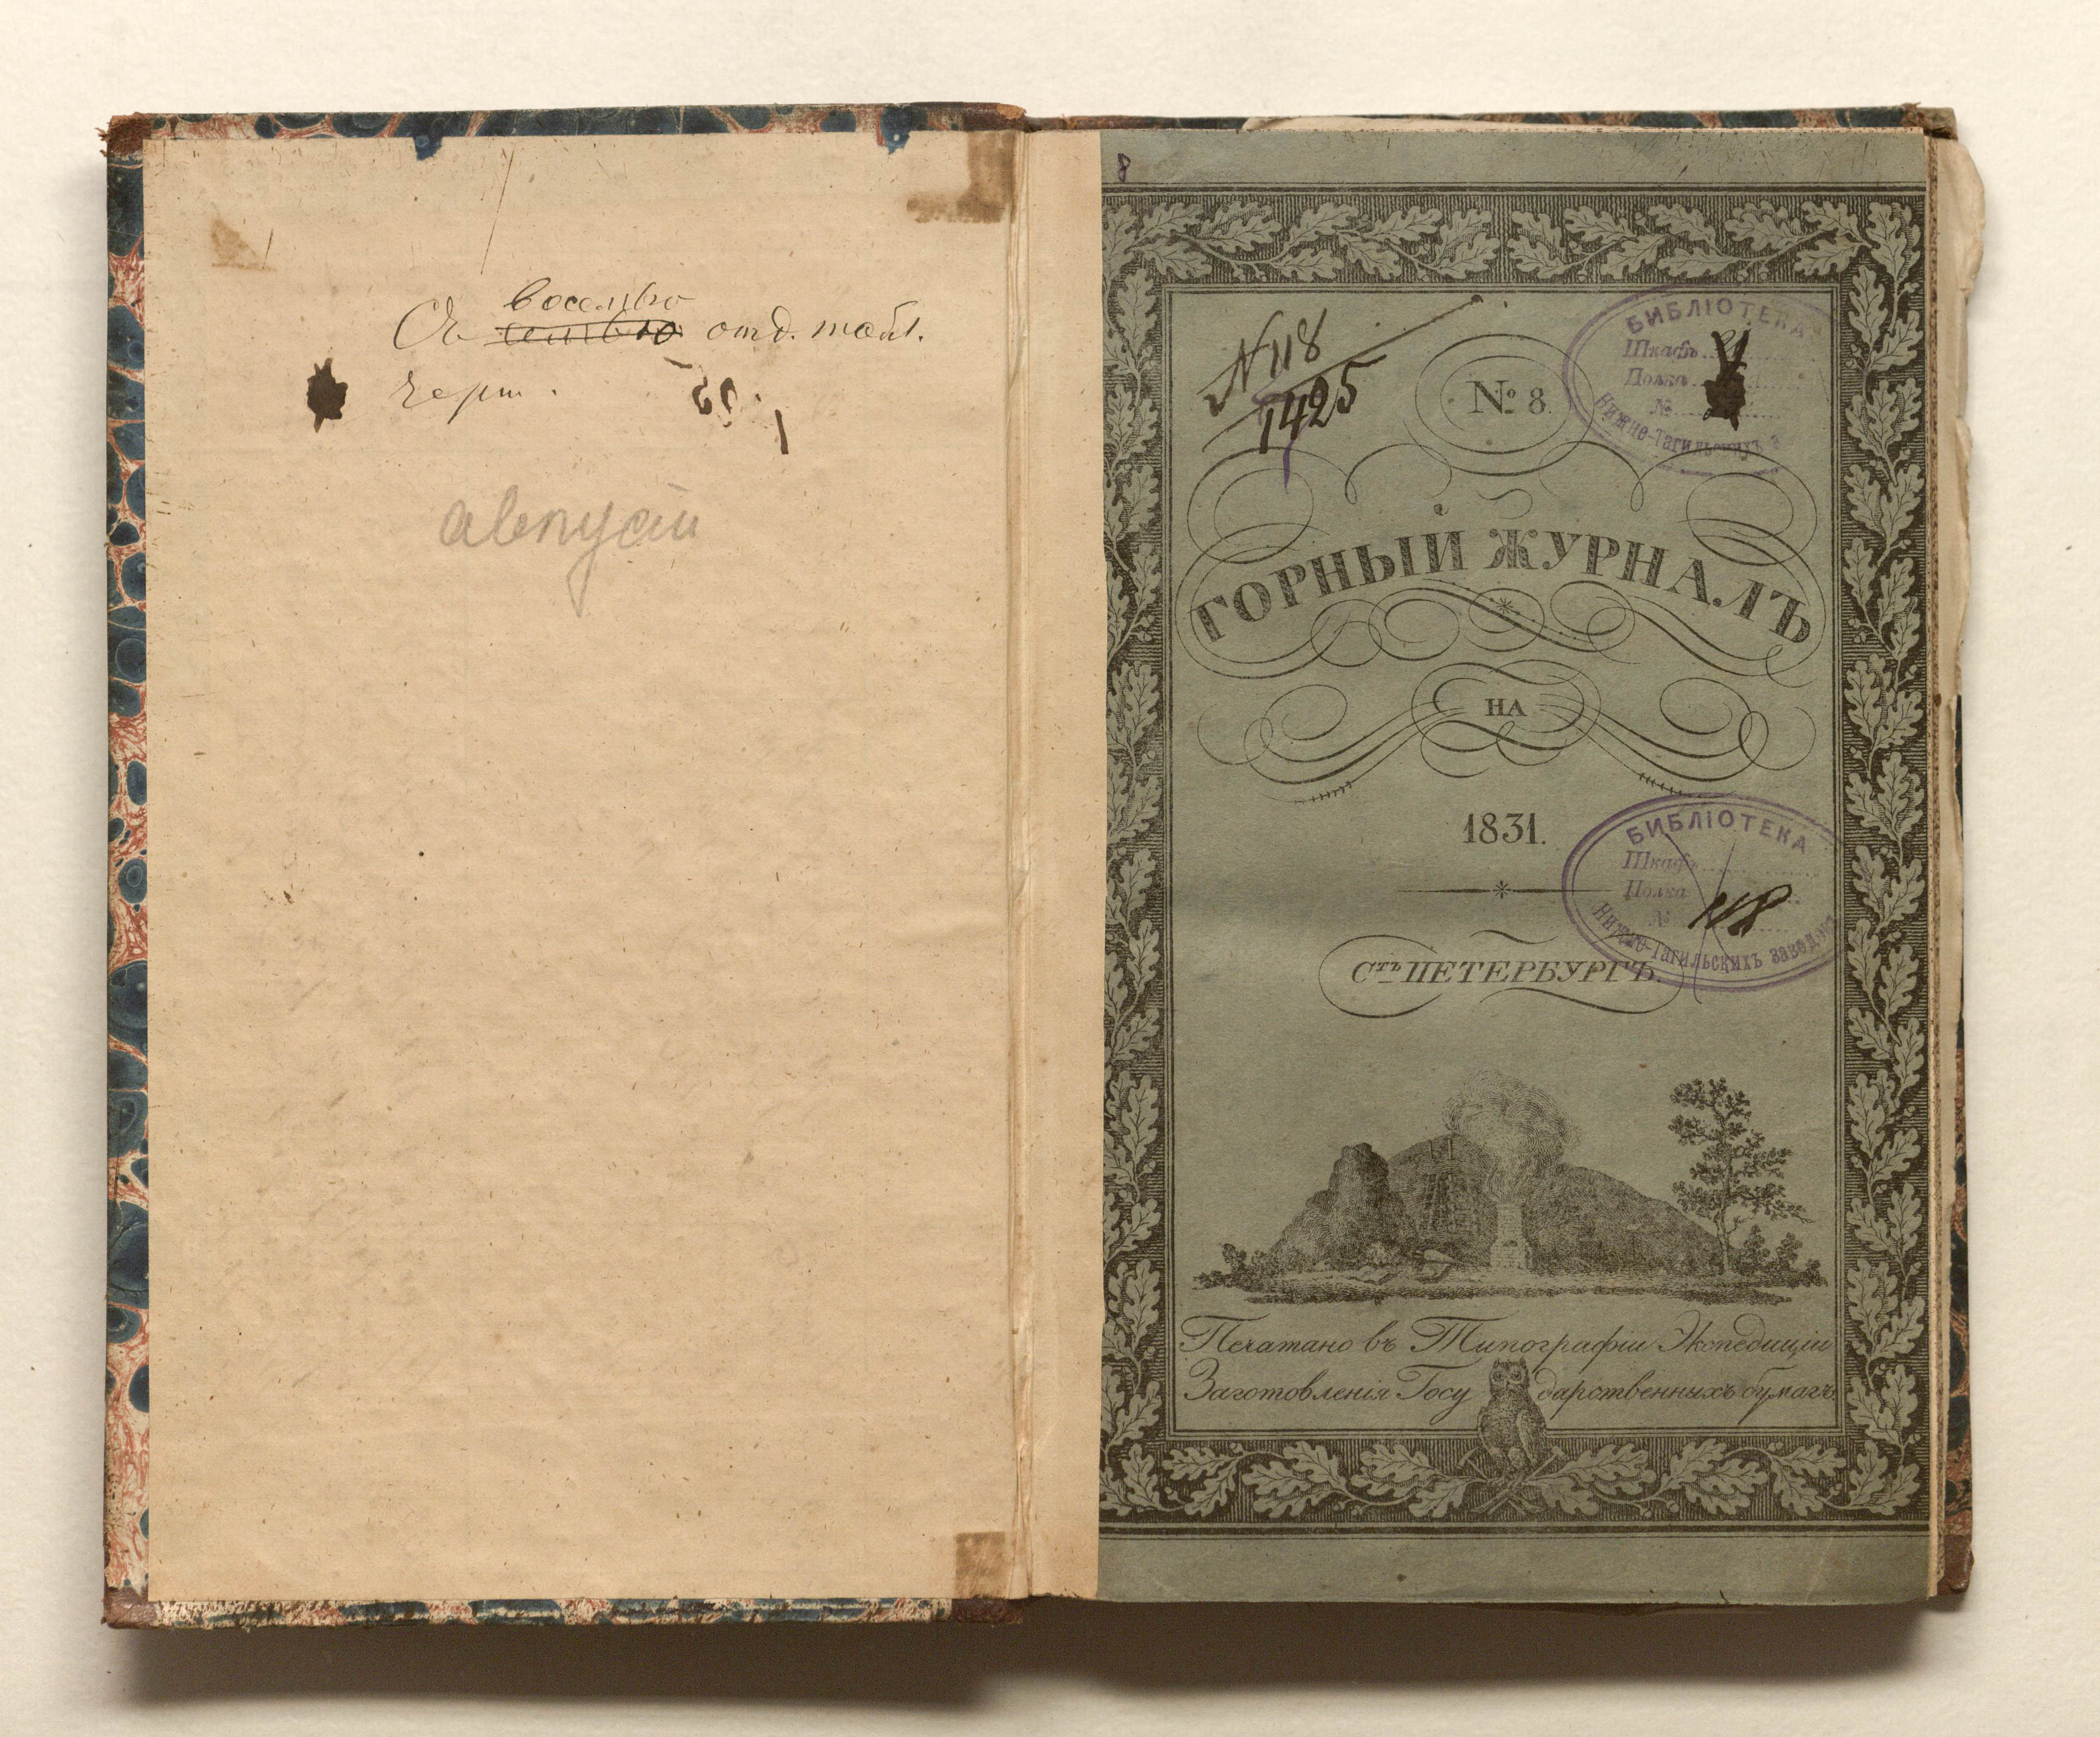 восемью
Съ семью отд. табл.
черт.
август
8
N 118
1425
№ 8.
БИБЛІОТЕКА
Шкафъ
Полка
№
Нижне-Тагильскихъ
ГОРНЫЙ ЖУРНАЛЪ
НА
1831.
БИБЛІОТЕКА
Шкафъ
Полка
№ 118
Нижне-Тагильскихъ заводовъ
Стъ ПЕТЕРБУРГЪ.
Печатано въ Типографіи Экспедиціи
Заготовленія Государственныхъ бумагъ